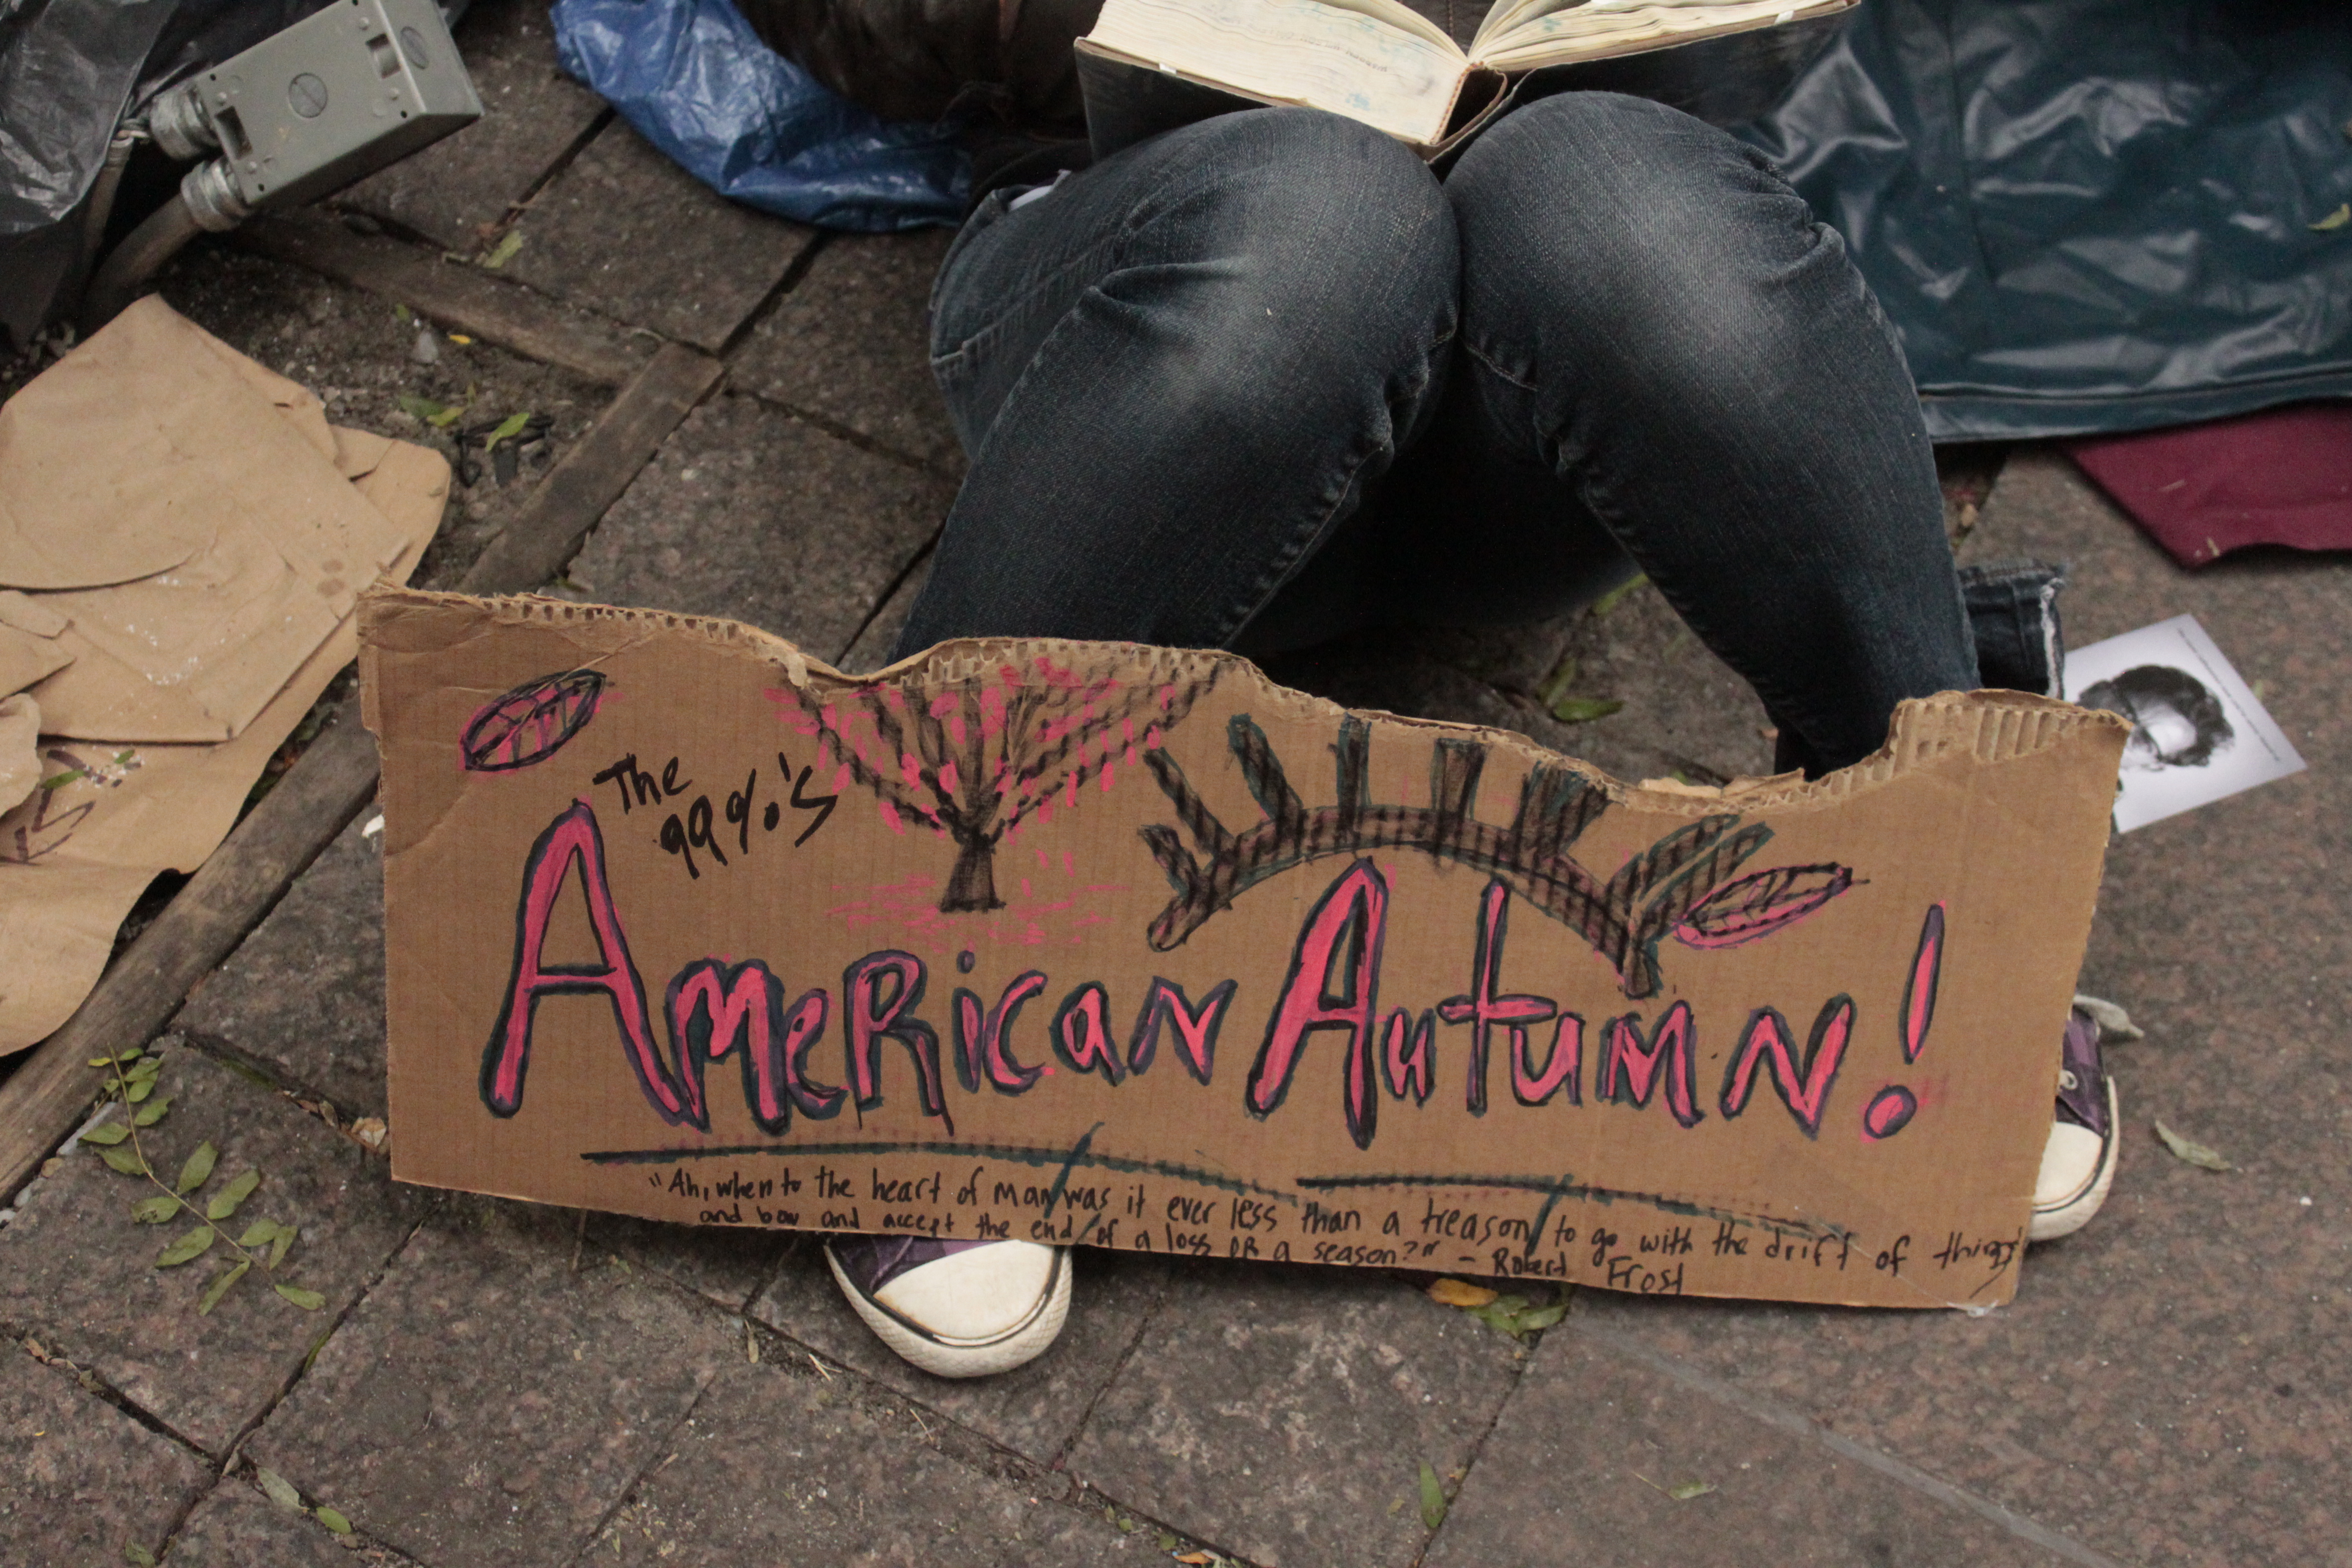 The
99%'s
AmeRican Autumn!
"Ah, when to the heart of man was it ever less than a treason, to go with the drift of things
and bow and accept the end of a loss OR a season?" - Robert Frost